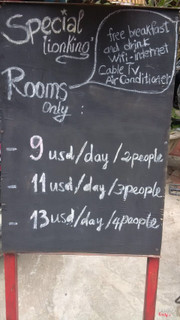 Special
"lionking"
free breakfast
and drink
Wifi-internet
Cable TV
Air Conditioner
Rooms
Only :
- 9 usd/day/2people
- 11 usd/day/3people
- 13 usd/day/4people